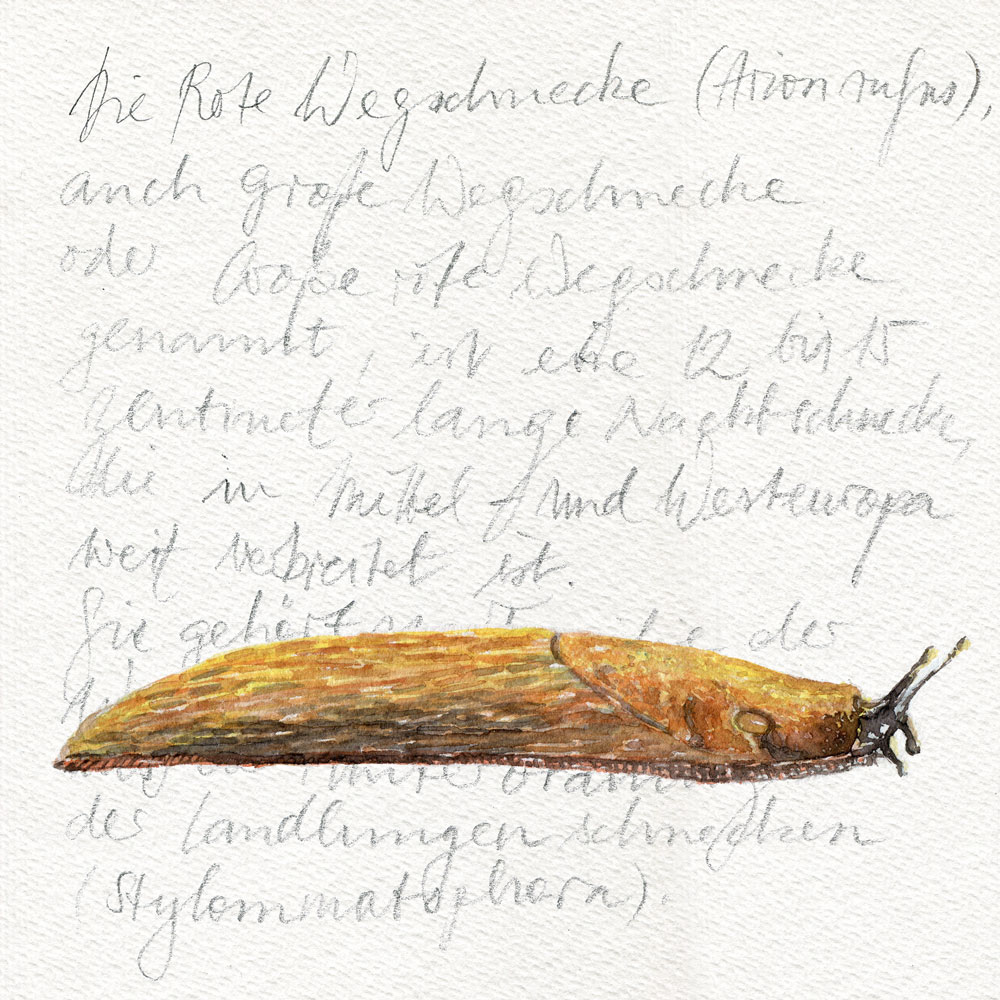 Die Rote Wegschnecke (Arion rufus),
auch Große Wegschnecke
oder Große rote Wegschnecke
genannt, ist eine 12 bis 15
Zentimeter lange Nacktschnecke,
die in Mittel- und Westeuropa
weit verbreitet ist.
Sie gehört der
der Landlungenschnecken
(Stylommatophora).